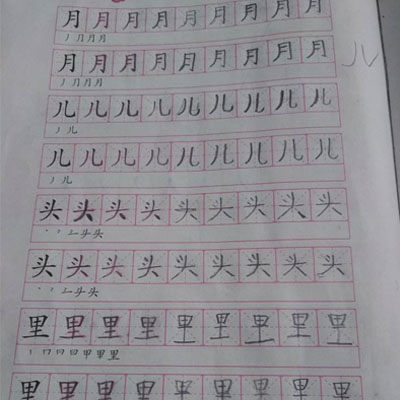 月月月月月月月月月
丿月月月
月月月月月月月月月 儿
丿月月月
儿儿儿儿儿儿儿儿儿
丿儿
儿儿儿儿儿儿儿儿儿
丿儿
头头头头头头头头头
头头头头头头头头头
里里里里里里里里里
里里里里里里里里里